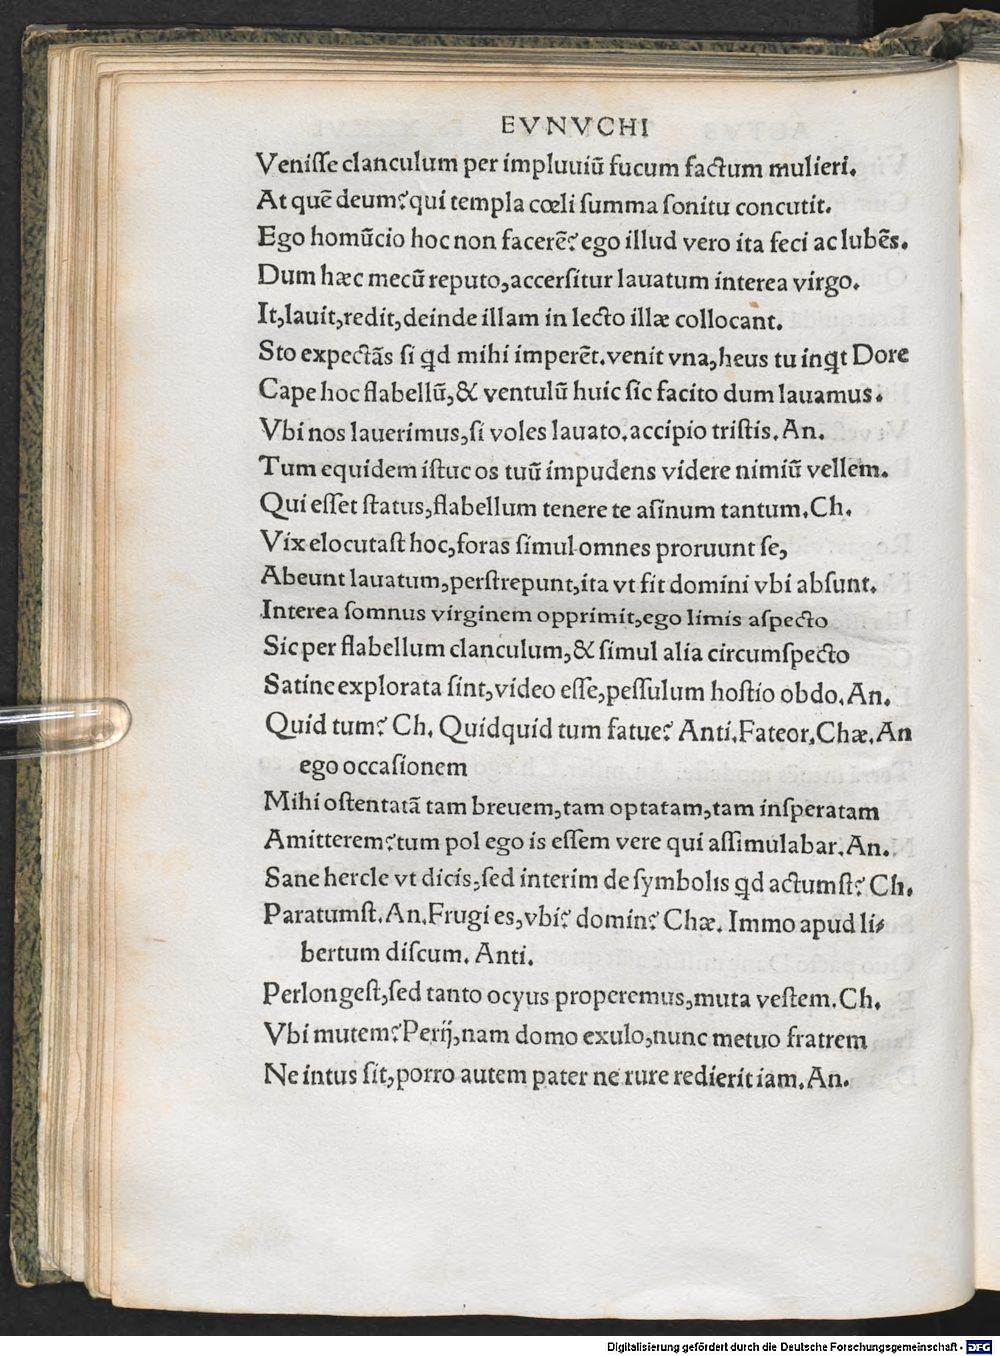 EVNVCHI
Veniſſe clanculum per impluuiũ fucum factum mulieri.
At quẽ deum? qui templa cœli ſumma ſonitu concutit.
Ego homũcio hoc non facerẽ? ego illud vero ita feci ac lubẽs.
Dum hæc mecũ reputo, accerſitur lauatum interea virgo.
It, lauit, redit, deinde illam in lecto illæ collocant.
Sto expectãs ſi qd mihi imperẽt. venit vna, heus tu inqt Dore
Cape hoc flabellũ, & ventulũ huic ſic facito dum lauamus.
Vbi nos lauerimus, ſi voles lauato. accipio triſtis. An.
Tum equidem iſtuc os tuũ impudens videre nimiũ vellem.
Qui eſſet ſtatus, flabellum tenere te aſinum tantum. Ch.
Vix elocutaſt hoc, foras ſimul omnes proruunt ſe,
Abeunt lauatum, perſtrepunt, ita vt fit domini vbi abſunt.
Interea ſomnus virginem opprimit, ego limis aſpecto
Sic per flabellum clanculum, & ſimul alia circumſpecto
Satine explorata ſint, video eſſe, peſſulum hoſtio obdo. An.
Quid tum? Ch. Quidquid tum fatue? Anti. Fateor. Chæ. An
ego occaſionem
Mihi oſtentatã tam breuem, tam optatam, tam inſperatam
Amitterem? tum pol ego is eſſem vere qui aſſimulabar. An.
Sane hercle vt dicis, ſed interim de ſymbolis qd actumſt? Ch.
Paratumſt. An. Frugi es, vbi? domin? Chæ. Immo apud li⸗
bertum diſcum. Anti.
Perlongeſt, ſed tanto ocyus properemus, muta veſtem. Ch.
Vbi mutem? Perij, nam domo exulo, nunc metuo fratrem
Ne intus ſit, porro autem pater ne rure redierit iam. An.
Digitalisierung gefördert durch die Deutsche Forschungsgemeinschaft - DFG